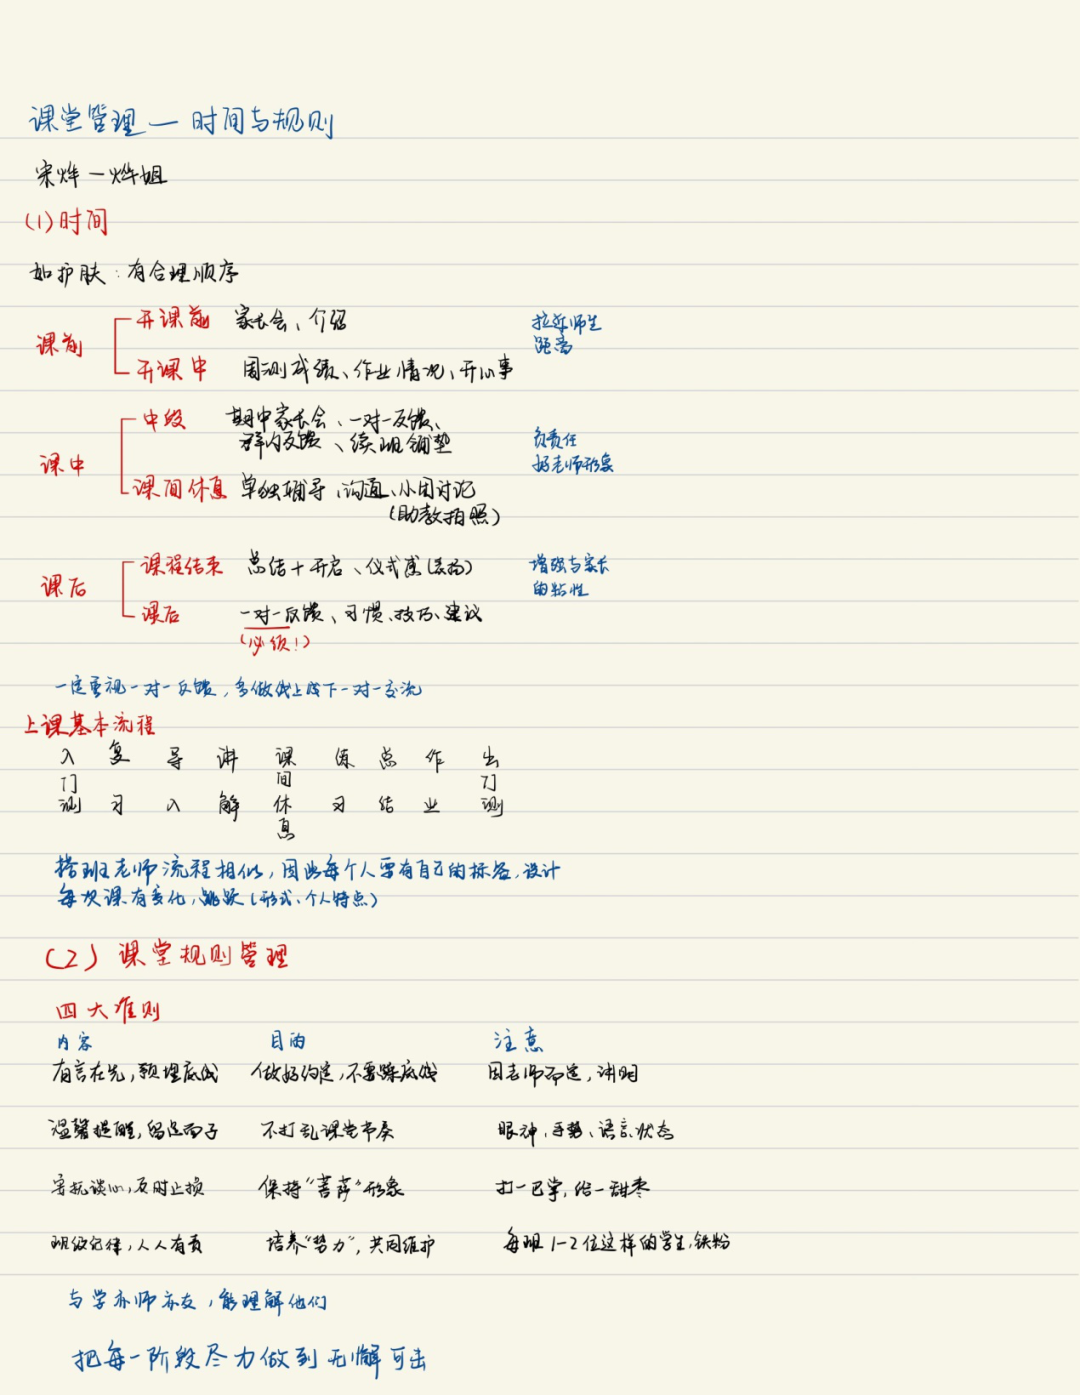 课堂管理—时间与规则
宋烨—烨姐
(1)时间
如护肤：有合理顺序
课前
开课前 家长会、介绍
拉近师生
距离
开课中 周测成绩、作业情况、开心事
课中
中段 期中家长会、一对一反馈、
群内反馈、续班铺垫
负责任
好老师形象
课间休息 单独辅导、沟通、小团讨论
(助教拍照)
课后
课程结束 总结+开启、仪式感
增强与家长
的粘性
课后 一对一反馈、习惯、技巧、建议
(必须！)
一定重视一对一反馈，多做线上线下一对一交流
上课基本流程
入门测 复习 导入 讲解 课间休息 练习 总结 作业 出门测
搭班老师流程相似，因此每个人要有自己的标签，设计
每次课有变化，跳跃(形式、个人特点)
(2)课堂规则管理
四大准则
内容 目的 注意
有言在先，预埋底线 做好约定，不要踩底线 因老师而定，讲明
温馨提醒，留足面子 不打乱课堂节奏 眼神、手势、语言、状态
谈心，及时止损 保持“菩萨”形象 打一巴掌，给一甜枣
班级纪律，人人有责 培养“势力”，共同维护 每班1-2位这样的学生，铁粉
与学亦师亦友，能理解他们
把每一阶段尽力做到无懈可击